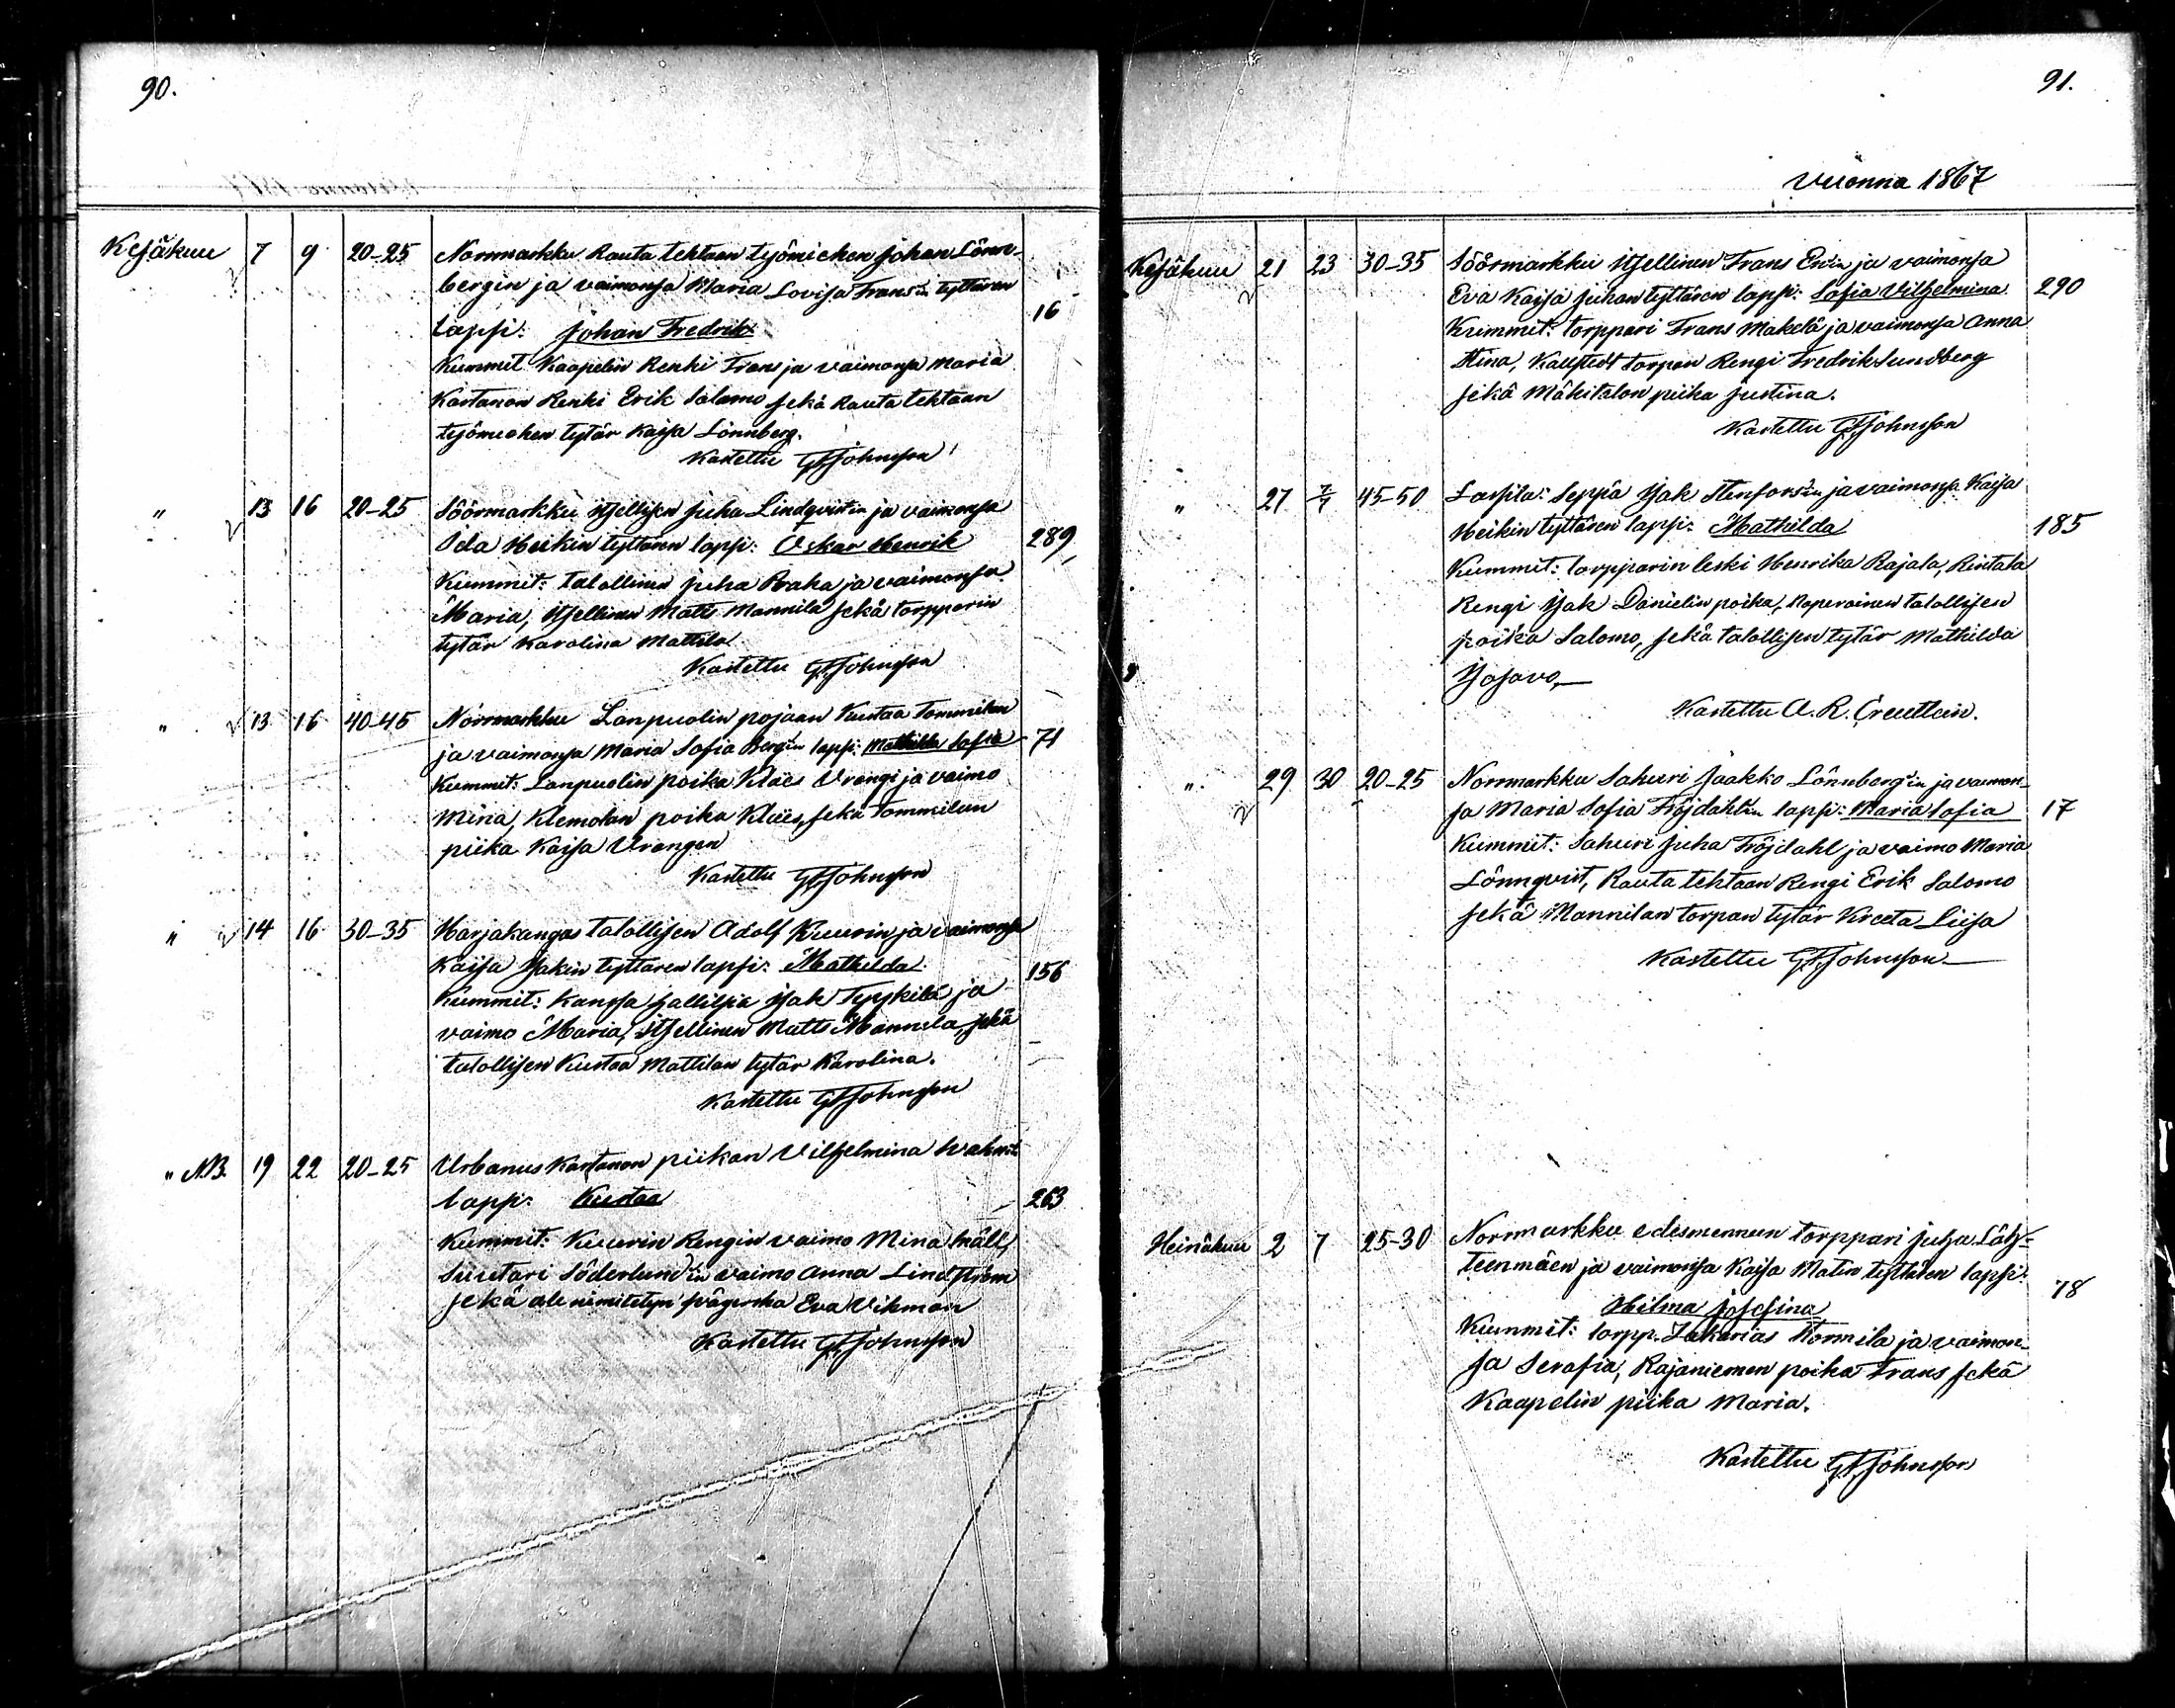 90.
Kesäkuu 7 9 20-25 Normarkku Rauta tehtaan työmiehen Johan Lönn-
bergin ja vaimonsa Maria Lovisa Frans'in tyttären
Lapsi: Johan Fredrik 16
Kummit Kaapelin Renki Frans ja vaimonsa Maria
Kartanon Renki Erik Salomo sekä Rauta tehtaan
työmiehen tytär Kajsa Lönnberg.
Kastettu GFJohnsson
" 13 16 20-25 Söörmarkku itsellisen Juha Lindqvist'in ja vaimonsa
Ida Heikin tyttären lapsi: Oskar Henrik 289
Kummit: talollinen Juha Raha ja vaimonsa
Maria, itsellinen Matts Mannila sekä torpparin
tytär Karolina Mattila
Kastettu GFJohnsson
" 13 16 40-45 Normarkku Lanpuolin pojaan Kustaa Tommilan
ja vaimonsa Maria Sofia Berg'in lapsi: Mathilda Sofia 71
Kummit: Lanpuolin poika Klaes Vrangi ja vaimo
Mina, Klemolan poika Klaes, sekä Tommilan
piika Kaisa Vrangen
Kastettu GFJohnsson
" 14 16 30-35 Harjakangas talollisen Adolf Kuurin ja vaimonsa
Kaisa Isakin tyttären lapsi: Mathilda 156
Kummit: Kanssa Isak Tyyskilä ja
vaimo Maria, itsellinen Matts Mannila, sekä
talollisen Kustaa Mattilan tytär Karolina.
Kastettu GFJohnsson
" NB. 19 22 20-25 Urbanus Kartanon piikan Vilhelmina
lapsi: Kustaa 263
Kummit: Kuurin Rengin vaimo Mina Mäll,
Suutari Söderlund'in vaimo Anna Lindström
sekä ale nimitetyn Eva Vikman
Kastettu GFJohnsson
91.
Vuonna 1867
Kesäkuu 21 23 30-35 Söörmarkku itsellinen Frans Ervin ja vaimonsa
Eva Kajsa Juhan tyttären lapsi: Sofia Vilhelmina 290
Kummit: torppari Frans Makelä ja vaimonsa Anna
Stina, torpan Rengi Fredrik Sundberg
sekä Mäkitalon piika Justina.
Kastettu GFJohnsson
" 27 7/7 45-50 Lassila: Seppä Isak Stenfors'in ja vaimonsa Kaisa
Heikin tyttären lapsi: Mathilda 185
Kummit: torpparin leski Henrika Rajala, Rintala
Rengi Isak Danielin poika, talollisen
poika Salomo, sekä talollisen tytär Mathilda
Kastettu A. R. Creutlein.
" 29 30 20-25 Normarkku Sahuri Jaakko Lönnberg'in ja vaimon-
sa Maria Sofia Fröjdahl'in lapsi: Maria Sofia 17
Kummit: Sahuri Juha Fröjdahl ja vaimo Maria
Lönnqvist, Rauta tehtaan Rengi Erik Salomo
sekä Mannilan torpan tytär Kreeta Liisa
Kastettu GFJohnsson
Heinäkuu 2 7 25-30 Normarkku edesmennen torppari Juha Läh-
teenmäen ja vaimonsa Kaisa Matin tyttären lapsi:
Hilma Josefina 78
Kummit: torpp. Sakarias Kormila ja vaimon-
sa Serafia, Rajaniemen poika Frans sekä
Kaapelin piika Maria.
Kastettu GFJohnsson